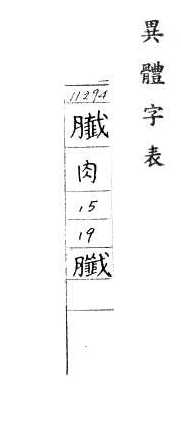 異體字表
11294
肉
15
19